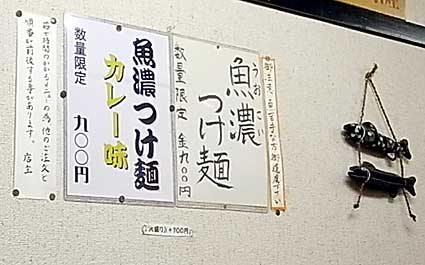 御注文
魚苦手な方御遠慮下さい
うおこい
魚濃
つけ麺
数量限定 金九〇〇円
魚濃つけ麺
カレー味
数量限定 九〇〇円
時間のかかるメニューの為、他のご注文と
順番が前後する事があります。 店主
大盛り +100円